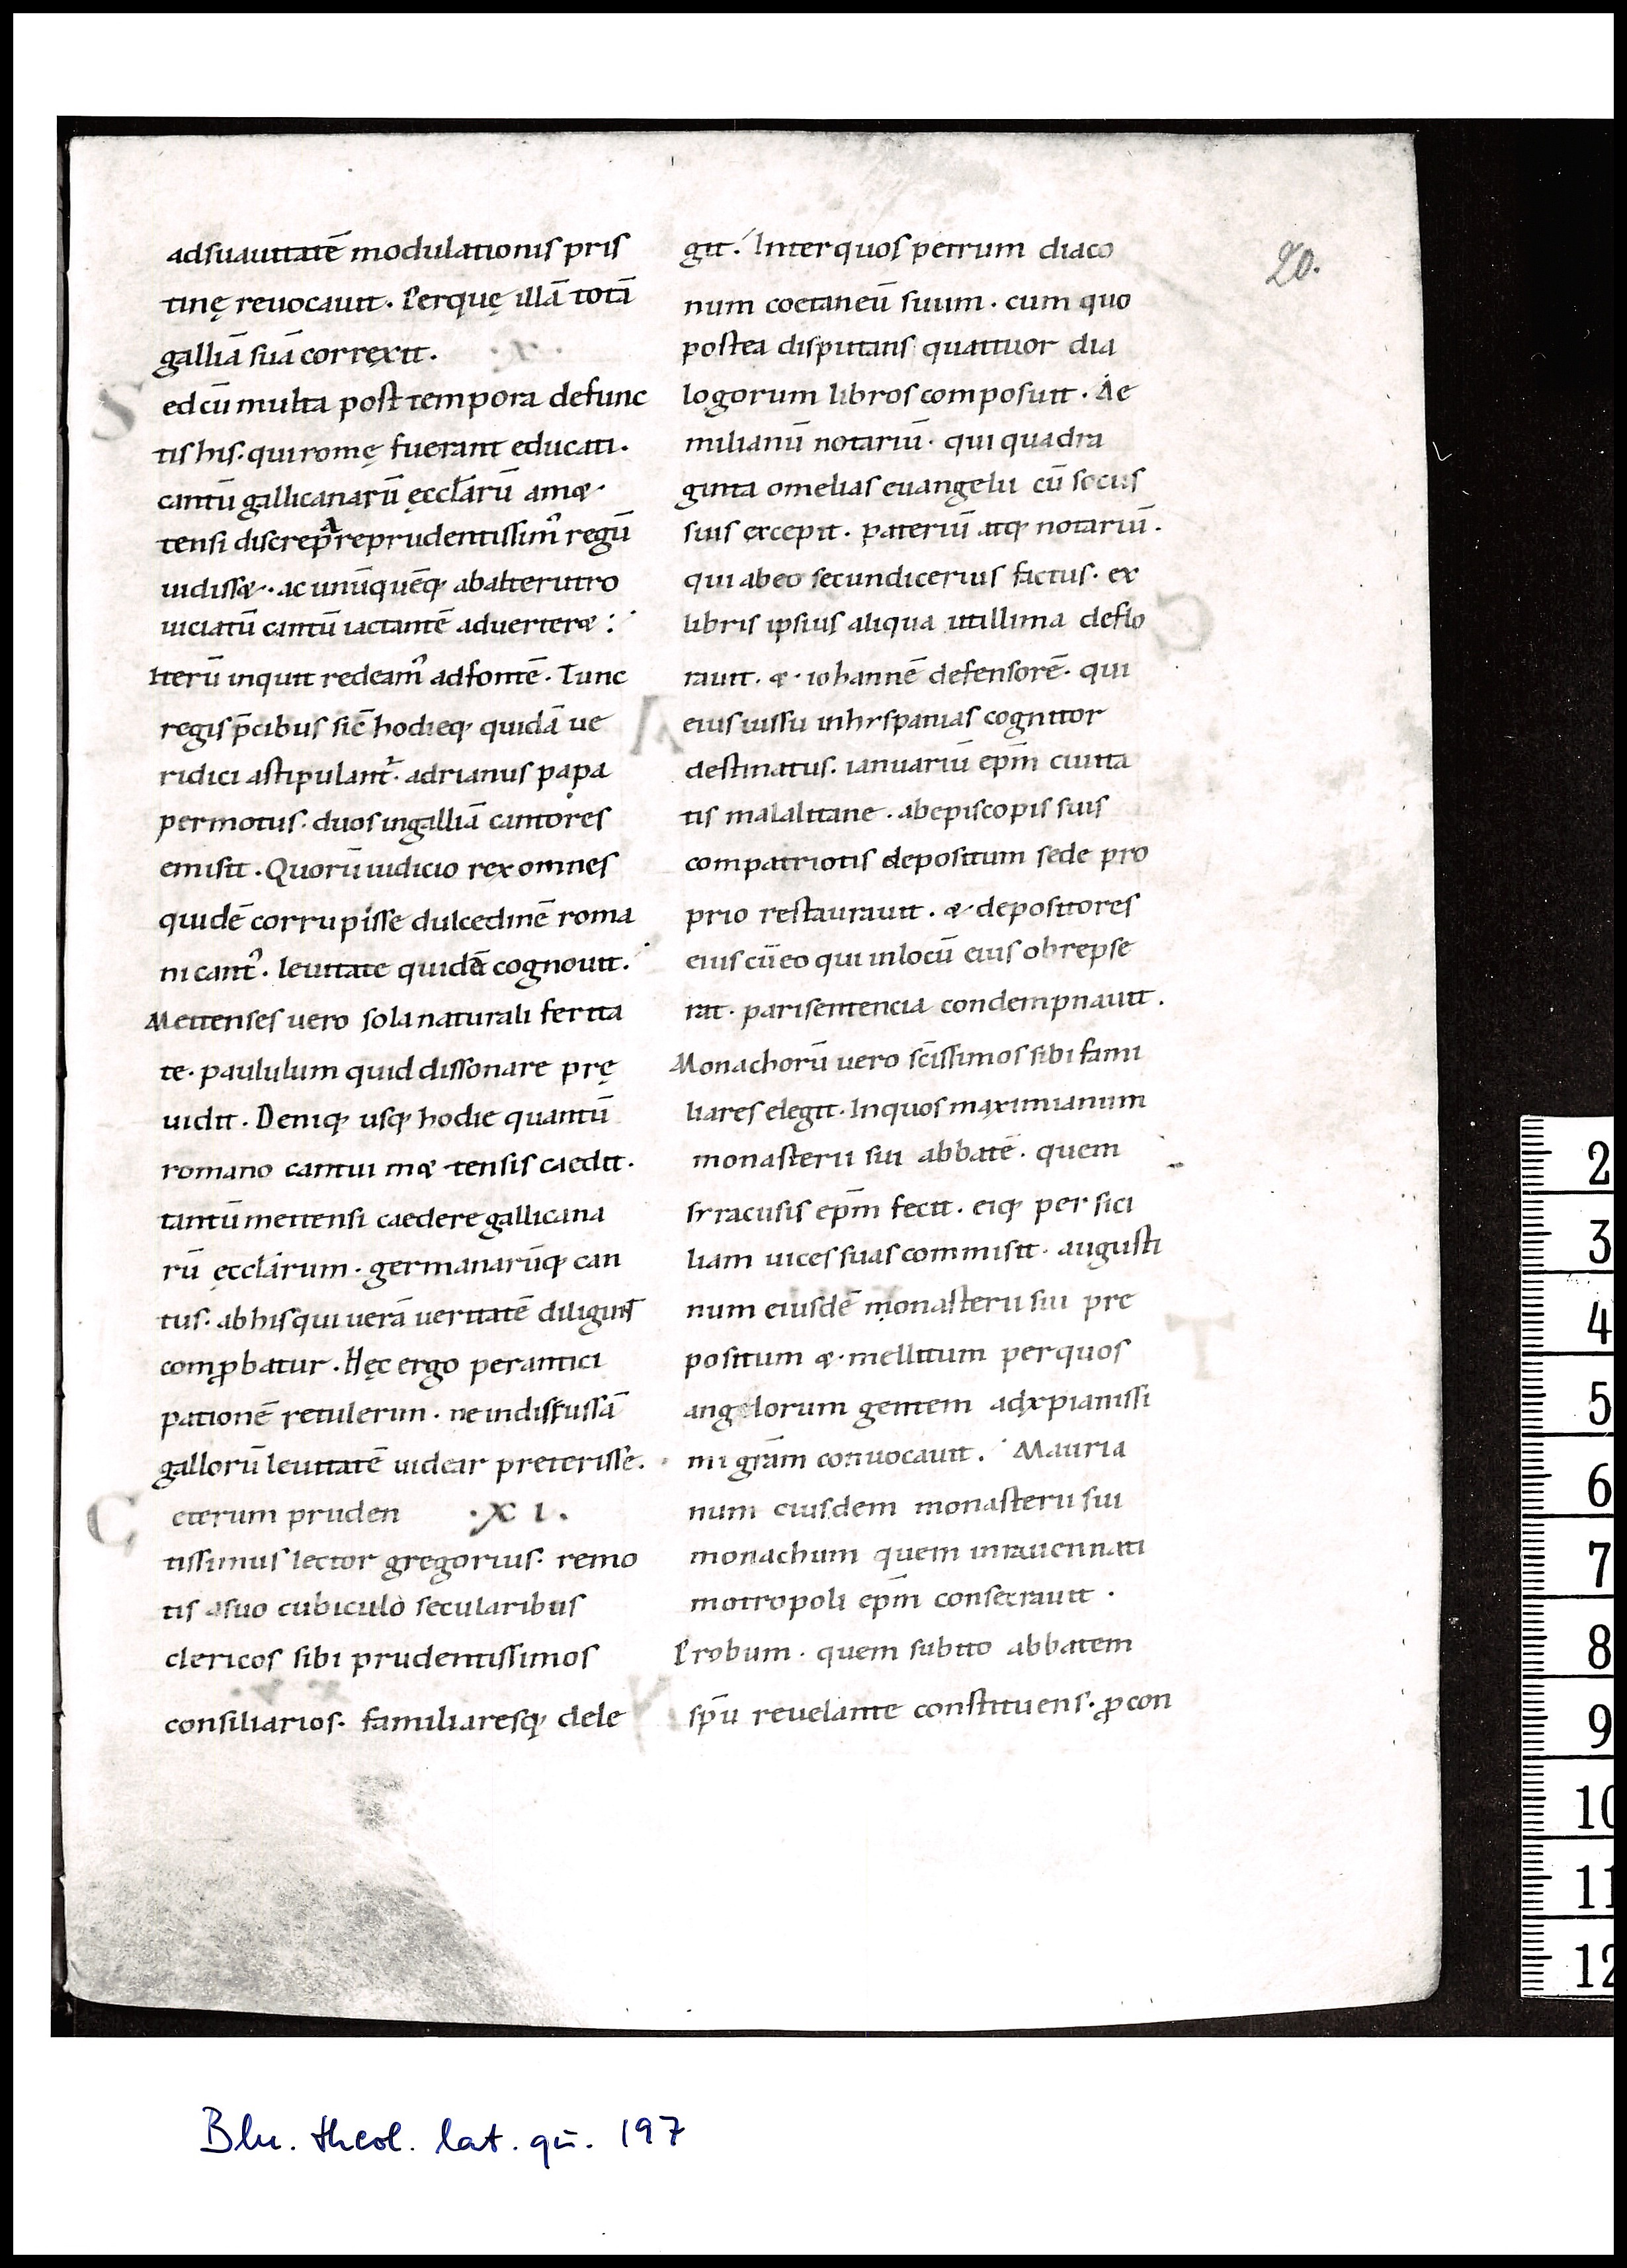 20.
adsuauitatē modulationis pris
tinę reuocauit. Perquę illā totā
galliā suā correxit. ·x·
Sed cū multa post tempora defunc
tis his. qui romę fuerant educati.
cantū gallicanarū ęccl̄arū a me
tensi discrepare prudentissim᾽ regū
uidisset. ac unūquēq; abalterutro
uiciatū cantū iactantē aduerteret:
Iterū inquit redeam᾽ adfontē. Tunc
regis p̄cibus sic̄ hodieq; quidā ue
ridici astipulant᾽. adrianus papa
permotus. duos ingalliā cantores
emisit. Quorū iudicio rex omnes
quidē corrupisse dulcedinē roma
ni cant᾽. leuitate quidā cognouit.
Mettenses uero sola naturali ferita
te. paululum quid dissonare prę
uidit. Deniq; usq; hodie quantū
romano cantui metensis caedit.
tantū mettensi caedere gallicana
rū ęccl̄arum. germanarūq; can
tus. ab his qui uerā ueritatē diligunt
comꝓbatur. Hęc ergo peranticі
pationē retulerim. ne indiscussā
gallorū leuitatē uidear preterisse.
Ceterum pruden ·XI.
tissimus lector gregorius. remo
tis asuo cubiculo secularibus
clericos sibi prudentissimos
consiliarios. familiaresq; dele
git. Inter quos petrum diaco
num coetaneū suum. cum quo
postea disputans quattuor dia
logorum libros composuit. Ae
milianū notariū. qui quadra
ginta omelias euangelii cū sociis
suis excepit. pateriū atq; notariū.
qui abeo secundicerius factus. ex
libris ipsius aliqua utillima deflo
rauit. &. iohannē defensorē. qui
eius iussu inhyspanias cognitor
destinatus. ianuariū ep̄m ciuita
tis malalitane. abepiscopis suis
compatriotis depositum sede pro
prio restaurauit. & depositores
eius cū eo qui inlocū eius obrepse
rat. parisentencia condempnauit.
Monachorū uero sc̄issimos sibi fami
liares elegit. Inquos maximianum
monasterii sui abbatē. quem
syracusis ep̄m fecit. eiq; per sici
liam uices suas commisit. augusti
num eiusdē monasterii sui pre
positum &. mellitum perquos
angelorum gentem adxpianissi
mi gr̄am conuocauit. Mauria
num eiusdem monasterii sui
monachum quem inrauennati
motropoli ep̄m consecrauit.
Probum. quem subito abbatem
sp̄u reuelante constituens. ꝓcon
Bln. theol. lat. qu. 197
2
3
4
5
6
7
8
9
10
11
12